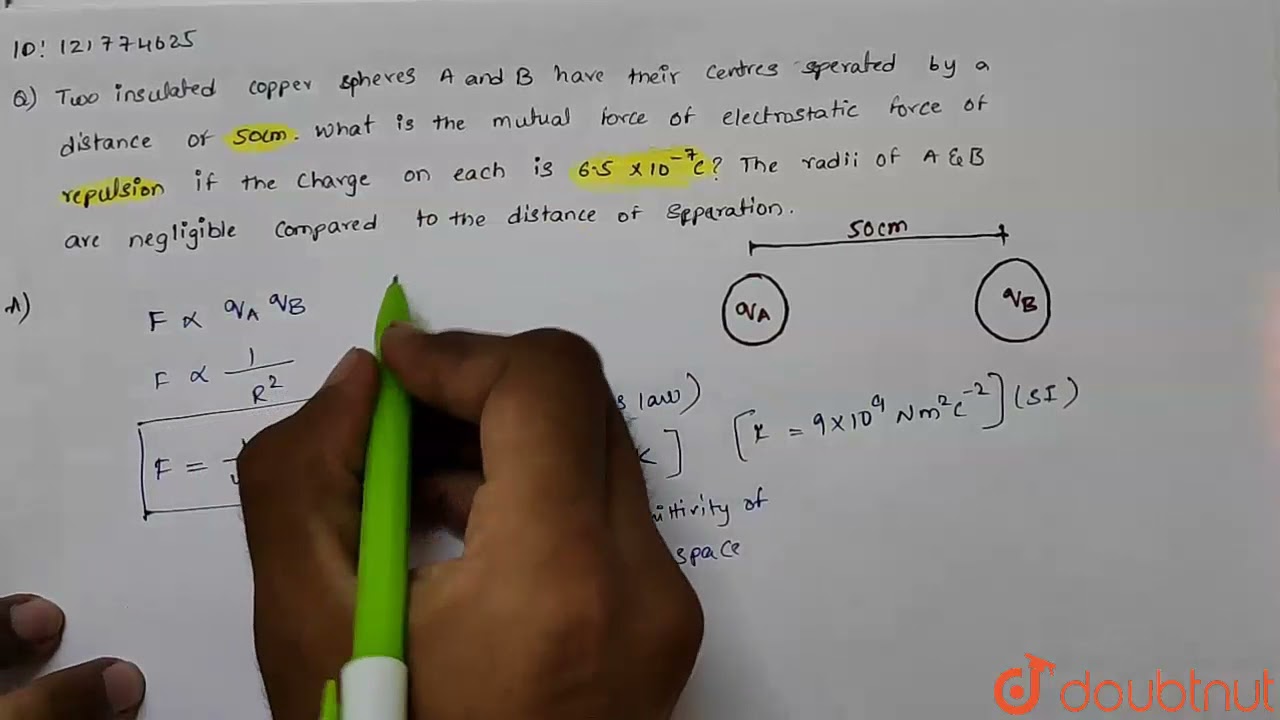 ID: 121774625
Q) Two insulated copper spheres A and B have their centres sperated by a
distance of 50cm. What is the mutual force of electrostatic force of
repulsion if the charge on each is 6.5 × 10⁻⁷C? The radii of A & B
are negligible compared to the distance of spparation.
50cm
qA
qB
A)
F ∝ qA qB
F ∝ 1/R²
law)
F =
K]
[K = 9×10⁹ Nm²C⁻²] (SI)
of
space
doubtnut